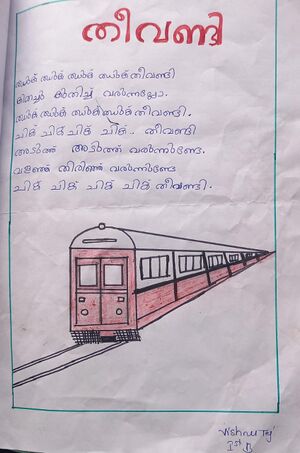 തീവണ്ടി
ഝുക് ഝുക് ഝുക് ഝുക് തീവണ്ടി
കിതച്ച് കുതിച്ച് വരുന്നല്ലോ.
ഝുക് ഝുക് ഝുക് ഝുക് തീവണ്ടി.
ചിക് ചിക് ചിക് ചിക്.. തീവണ്ടി
അടുത്ത് അടുത്ത് വരുന്നുണ്ടേ.
വളഞ്ഞ് തിരിഞ്ഞ് വരുന്നുണ്ടേ
ചിക് ചിക് ചിക് ചിക് തീവണ്ടി.
Vishnu Tej
1st B